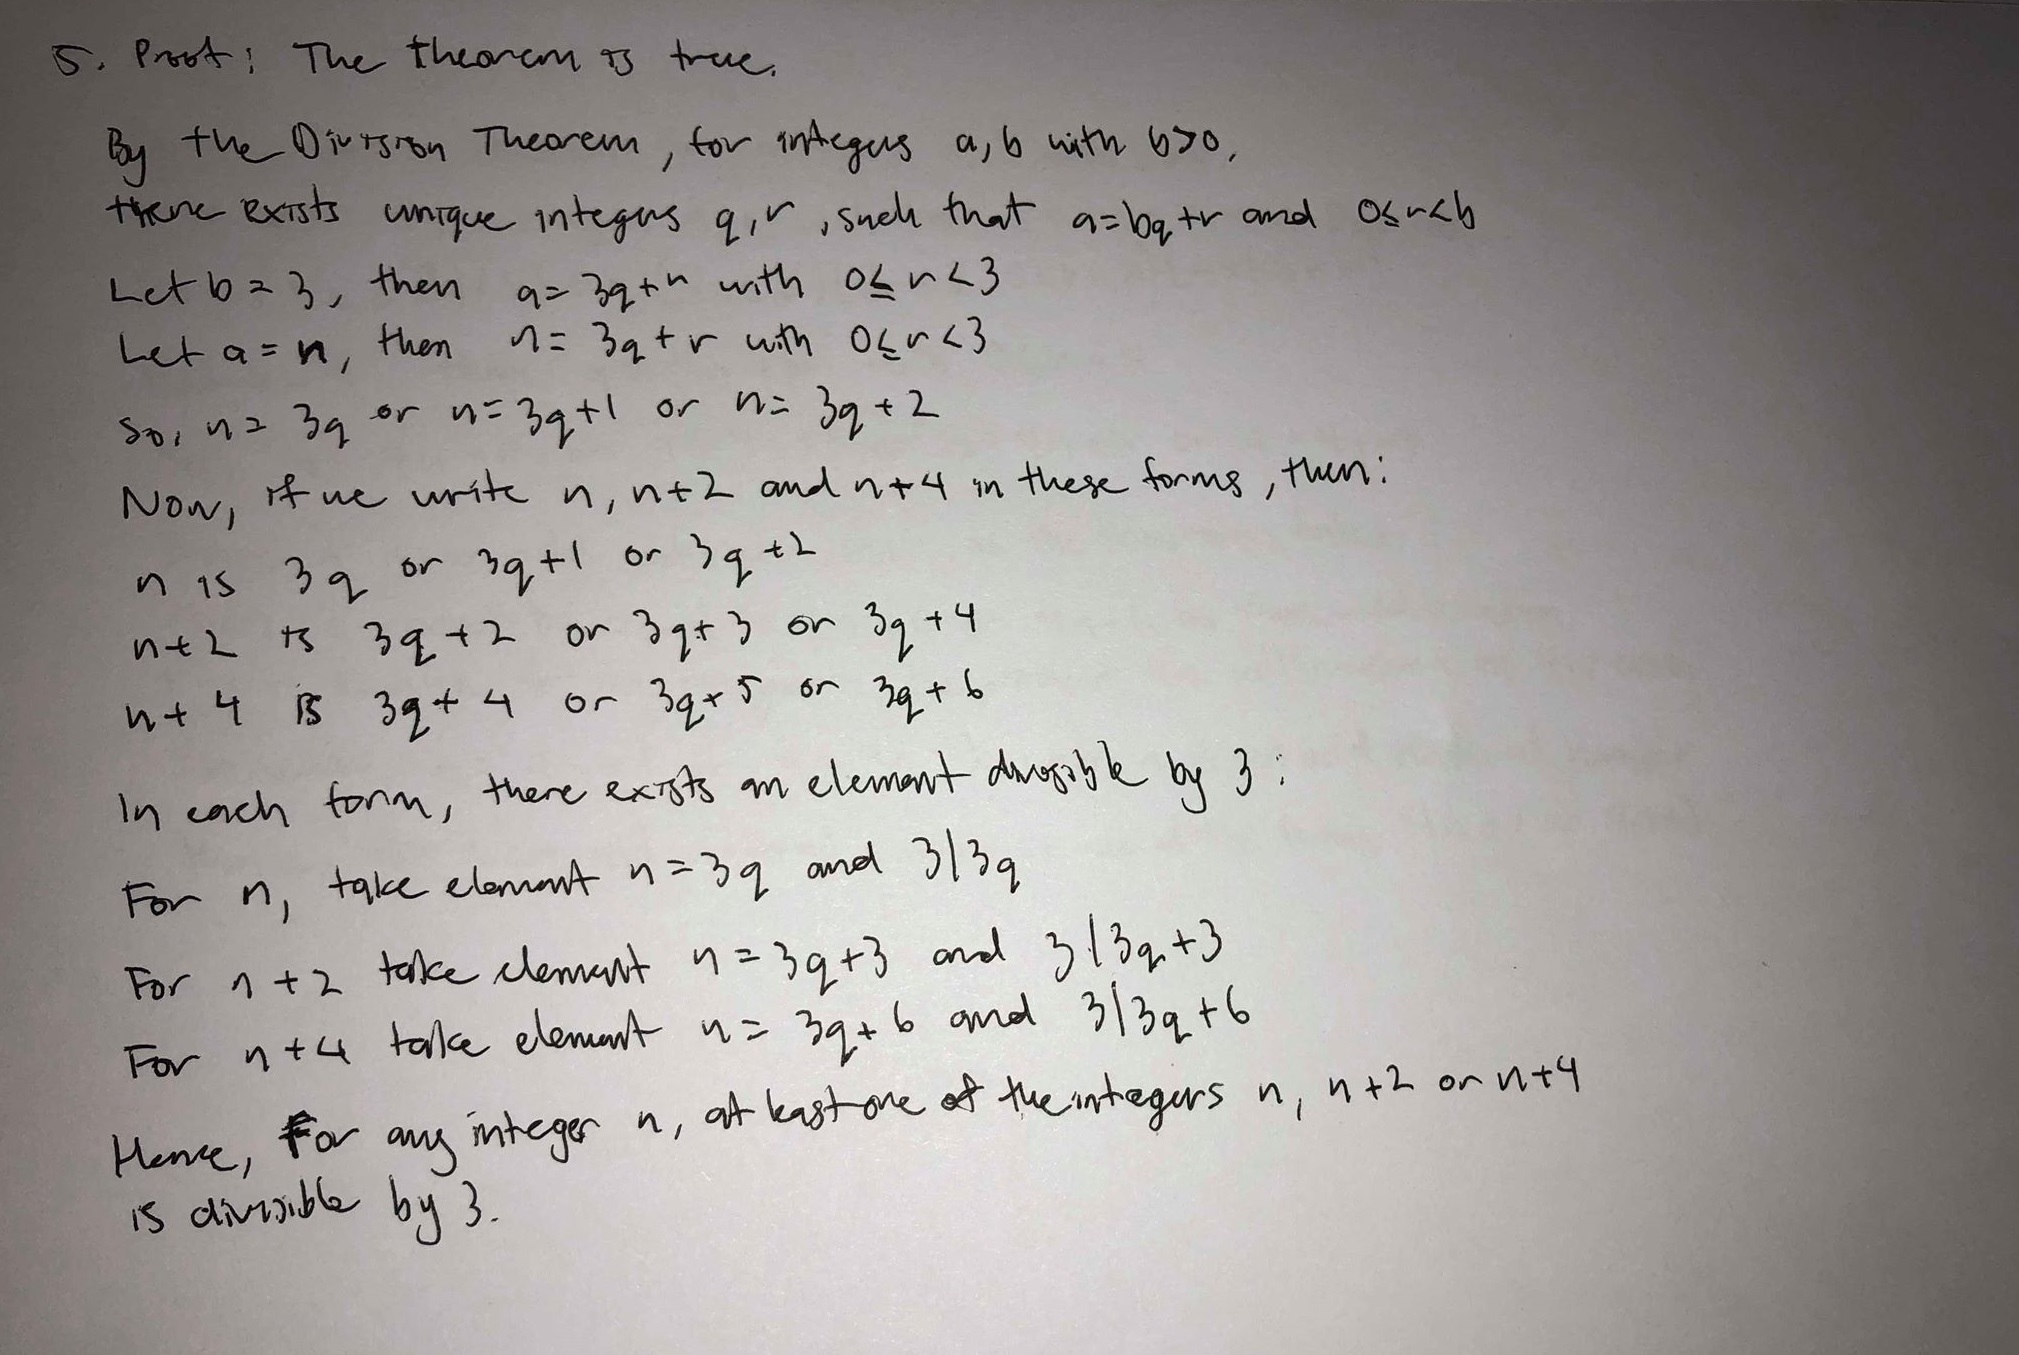 5. Proof: The theorem is true.
By the Division Theorem, for integers a,b with b>0,
there exists unique integers q,r, such that a=bq+r and 0≤r<b
Let b=3, then a=3q+r with 0≤r<3
Let a=n, then n=3q+r with 0≤r<3
So, n=3q or n=3q+1 or n=3q+2
Now, if we write n, n+2 and n+4 in these forms, then:
n is 3q or 3q+1 or 3q+2
n+2 is 3q+2 or 3q+3 or 3q+4
n+4 is 3q+4 or 3q+5 or 3q+6
In each form, there exists an element divisible by 3:
For n, take element n=3q and 3|3q
For n+2 take element n=3q+3 and 3|3q+3
For n+4 take element n=3q+6 and 3|3q+6
Hence, For any integer n, at least one of the integers n, n+2 or n+4
is divisible by 3.